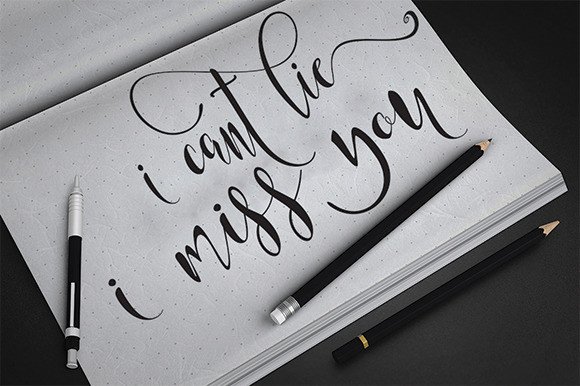 i cant lie
i miss you